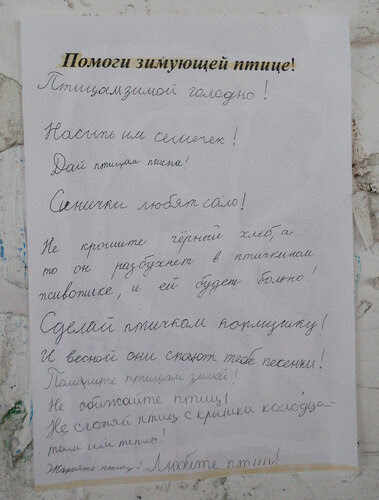 Помоги зимующей птице!
Птицам зимой голодно!
Насыпь им семечек!
Дай птицам пшена!
Синички любят сало!
Не крошите чёрный хлеб, а
то он разбухнет в птичкином
животике, и ей будет больно!
Сделай птичкам кормушку!
И весной они споют тебе песенки!
Помогите птицам зимой!
Не обижайте птиц!
Не сгоняй птиц с крышки колодца-
там им тепло!
Жалейте птиц! Любите птиц!